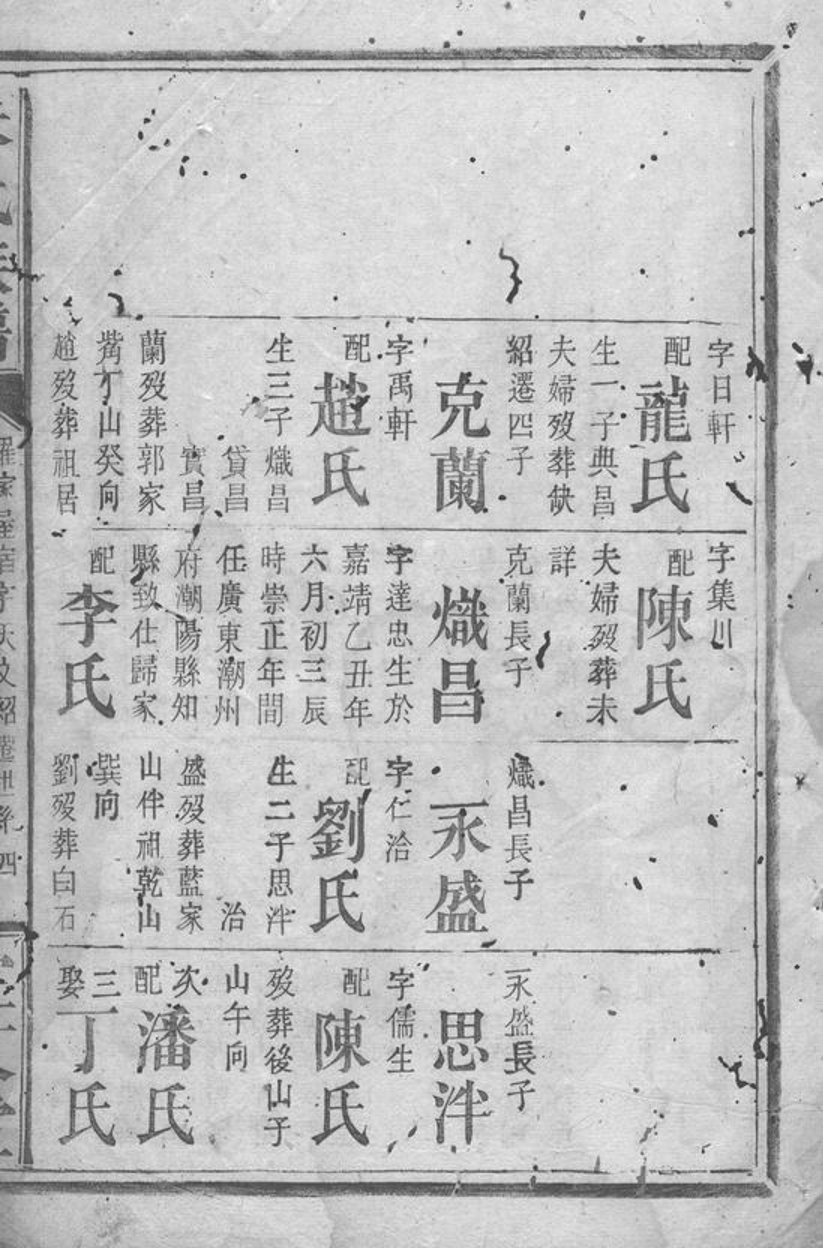 字日軒
配龍氏
生一子典昌
夫婦歿葬缺
紹遷四子
克蘭
字禹軒
配趙氏
生三子熾昌
貸昌
實昌
蘭歿葬郭家
觜丁山癸向
趙歿葬祖居
字集川
配陳氏
夫婦歿葬未
詳
克蘭長子
熾昌
字達忠生於
嘉靖乙丑年
六月初三辰
時崇正年間
任廣東潮州
府潮陽縣知
縣致仕歸家
配李氏
熾昌長子
永盛
字仁洽
配劉氏
生二子思泮
治
盛歿葬藍家
山伴祖乾山
巽向
劉歿葬白石
永盛長子
思泮
字儒生
配陳氏
歿葬後山子
山午向
次配潘氏
三娶丁氏